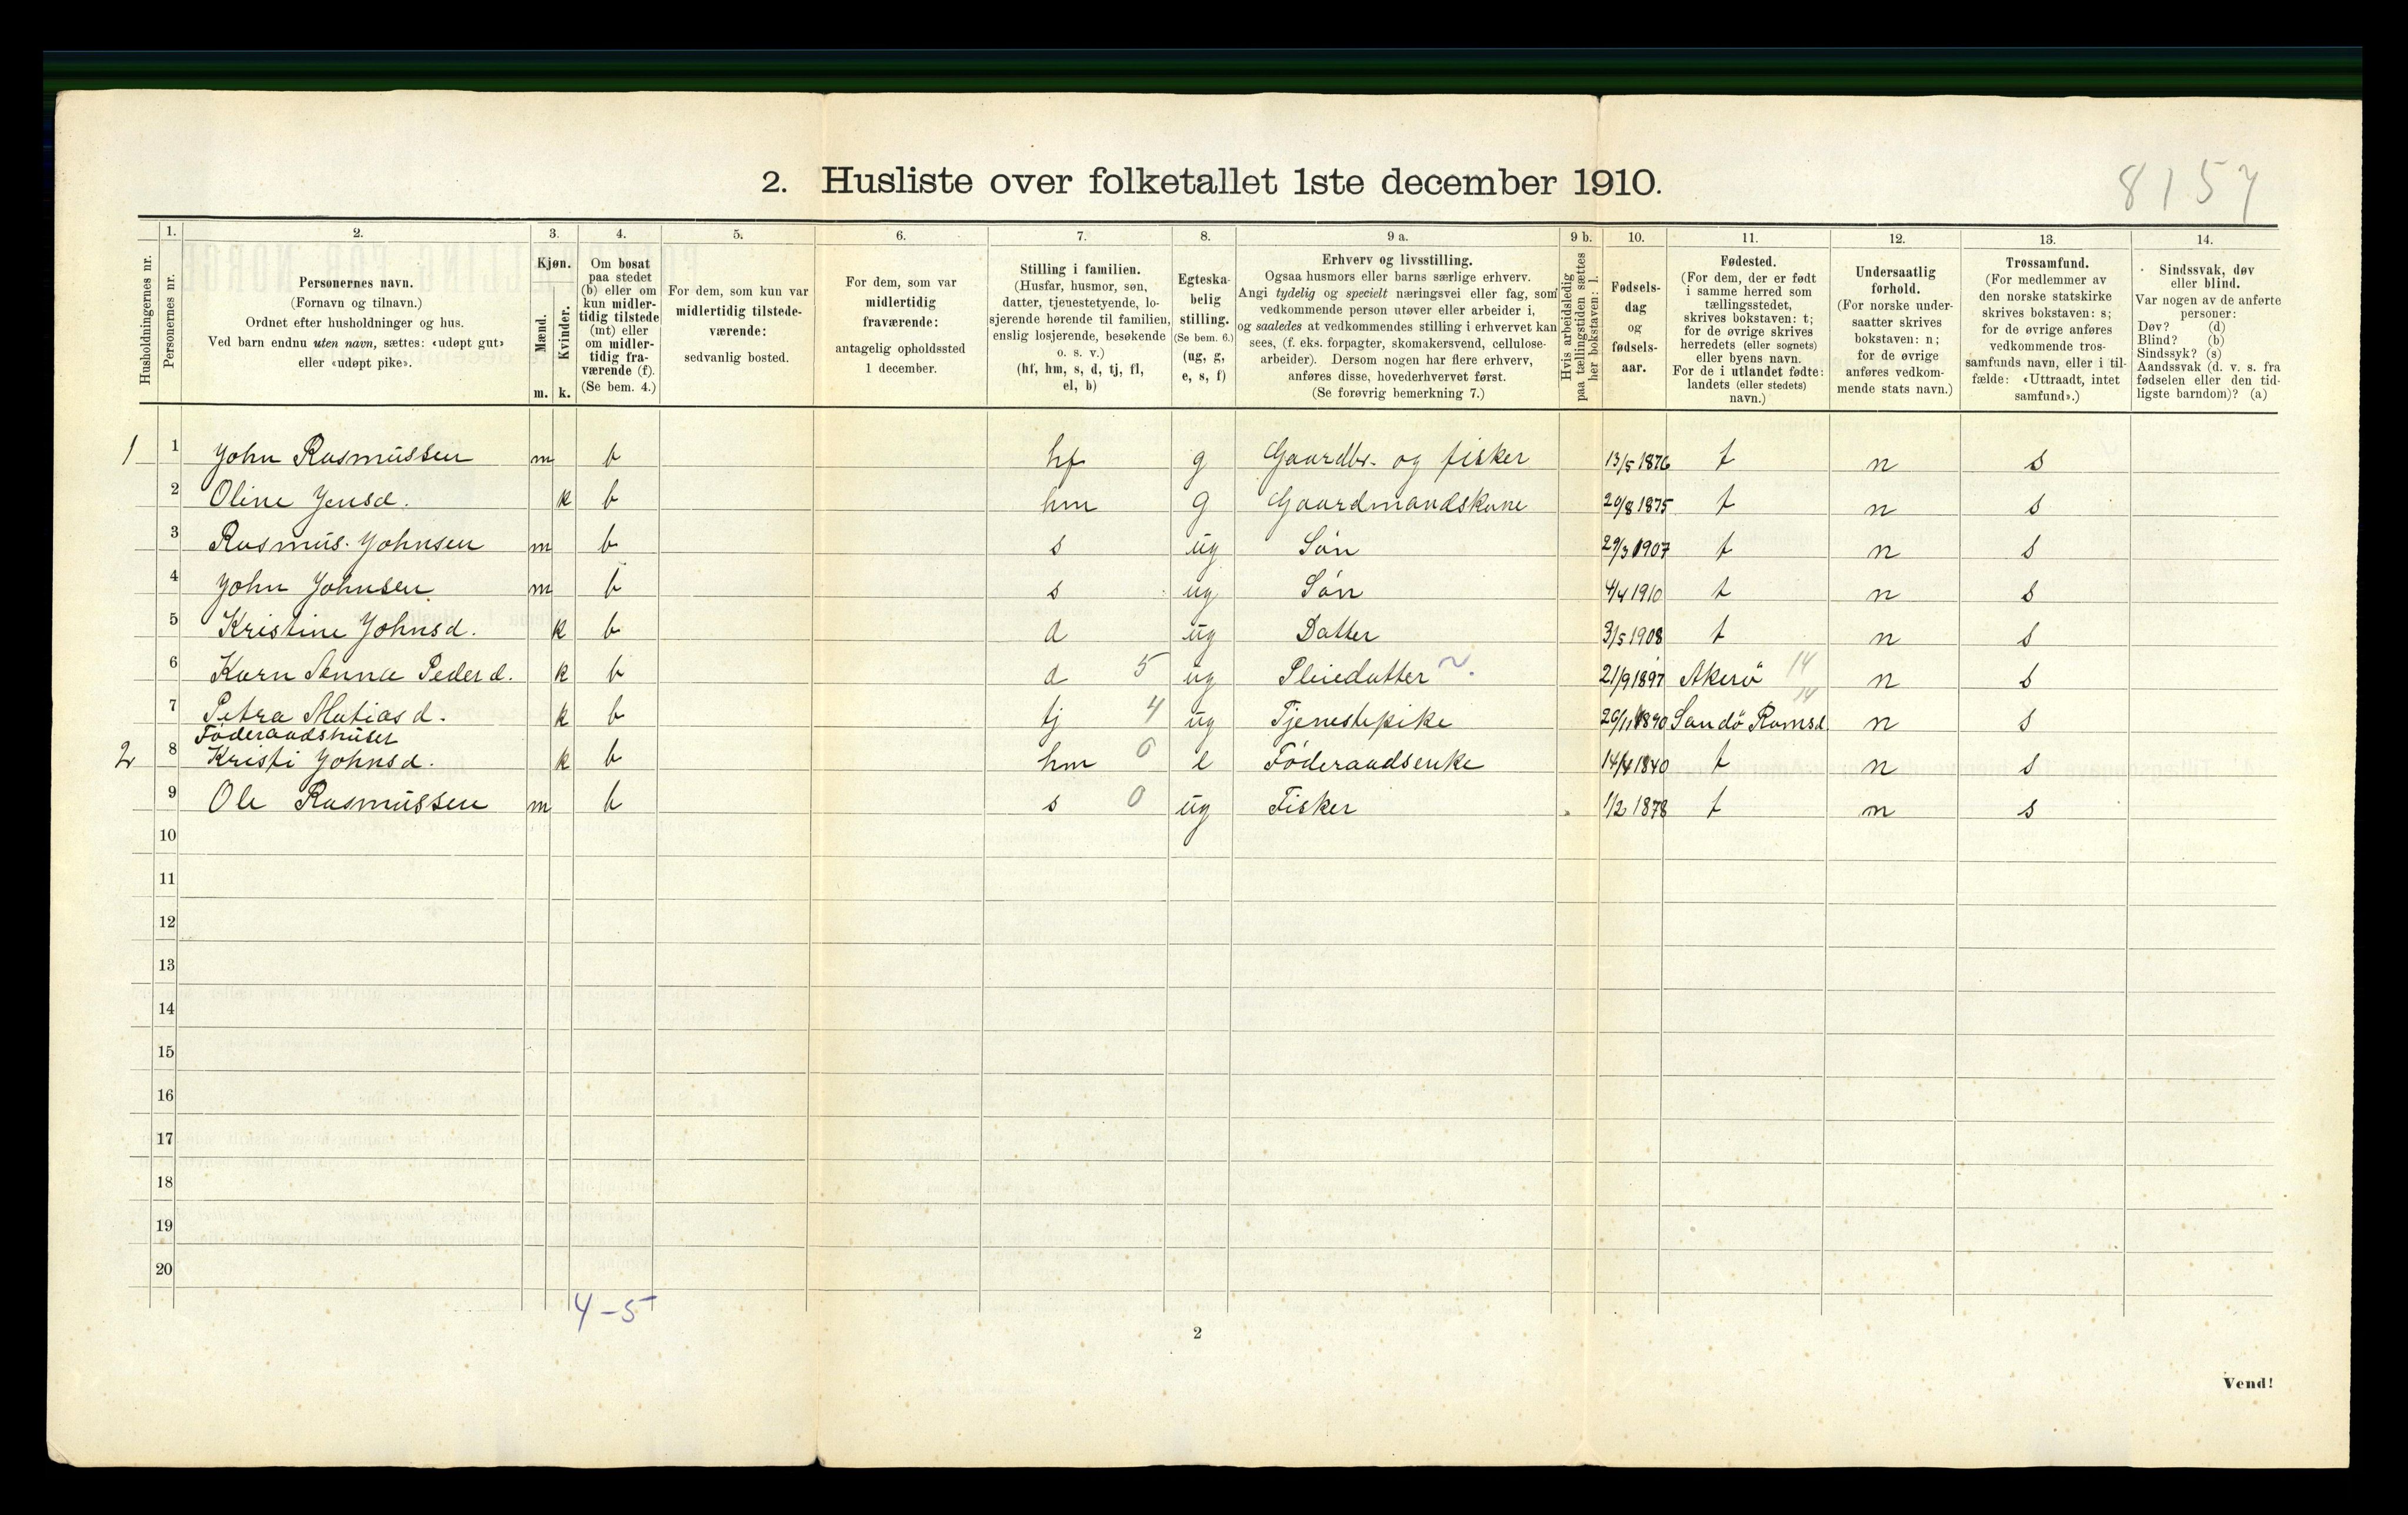 2. Husliste over folketallet 1ste december 1910.
8157
Husholdningernes nr.
1.
Personernes nr.
2.
Personernes navn.
(Fornavn og tilnavn.)
Ordnet efter husholdninger og hus.
Ved barn endnu uten navn, sættes: «udøpt gut»
eller «udøpt pike».
3.
Kjøn.
Mænd.
Kvinder.
m. k.
4.
Om bosat
paa stedet
(b) eller om
kun midler-
tidig tilstede
(mt) eller
om midler-
tidig fra-
værende (f).
(Se bem. 4.)
5.
For dem, som kun var
midlertidig tilstede-
værende:
sedvanlig bosted.
6.
For dem, som var
midlertidig
fraværende:
antagelig opholdssted
1 december.
7.
Stilling i familien.
(Husfar, husmor, søn,
datter, tjenestetyende, lo-
sjerende hørende til familien,
enslig losjerende, besøkende
o. s. v.)
(hf, hm, s, d, tj, fl,
el, b)
8.
Egteska-
belig
stilling.
(Se bem. 6.)
(ug, g,
e, s, f)
9 a.
Erhverv og livsstilling.
Ogsaa husmors eller barns særlige erhverv.
Angi tydelig og specielt næringsvei eller fag, som
vedkommende person utøver eller arbeider i,
og saaledes at vedkommendes stilling i erhvervet kan
sees, (f. eks. forpagter, skomakersvend, cellulose-
arbeider). Dersom nogen har flere erhverv,
anføres disse, hovederhvervet først.
(Se forøvrig bemerkning 7.)
9 b.
Hvis arbeidsledig
paa tællingstiden sættes
her bokstaven: l.
10.
Fødsels-
dag
og
fødsels-
aar.
11.
Fødested.
(For dem, der er født
i samme herred som
tællingsstedet,
skrives bokstaven: t;
for de øvrige skrives
herredets (eller sognets)
eller byens navn.
For de i utlandet fødte:
landets (eller stedets)
navn.)
12.
Undersaatlig
forhold.
(For norske under-
saatter skrives
bokstaven: n;
for de øvrige
anføres vedkom-
mende stats navn.)
13.
Trossamfund.
(For medlemmer av
den norske statskirke
skrives bokstaven: s;
for de øvrige anføres
vedkommende tros-
samfunds navn, eller i til-
fælde: «Uttraadt, intet
samfund».)
14.
Sindssvak, døv
eller blind.
Var nogen av de anførte
personer:
Døv? (d)
Blind? (b)
Sindssyk? (s)
Aandssvak (d. v. s. fra
fødselen eller den tid-
ligste barndom)? (a)
1 1 John Rasmussen m b hf g Gaardbr. og fisker 13/5 1876 t n s
2 Oline Jensd. k b hm g Gaardmandskone 20/8 1875 t n s
3 Rasmus Johnsen m b s ug Søn 29/3 1907 t n s
4 John Johnsen m b s ug Søn 4/4 1910 t n s
5 Kristine Johnsd. k b d ug Datter 3/5 1908 t n s
6 Karn Anna Pederd. k b d 5 ug Pleiedatter 21/9 1897 Akerö 14 n s
7 Petra Matiasd. k b tj 4 ug Tjenestepike 20/11 1890 Sandö Romsd. 14 n s
Föderaadshuset
2 8 Kristi Johnsd. k b hm 0 e Föderaadsenke 14/4 1840 t n s
9 Ole Rasmussen m b s 0 ug Fisker 1/2 1878 t n s
10
11
12
13
14
15
16
17
18
19
20
4-5
2
Vend!